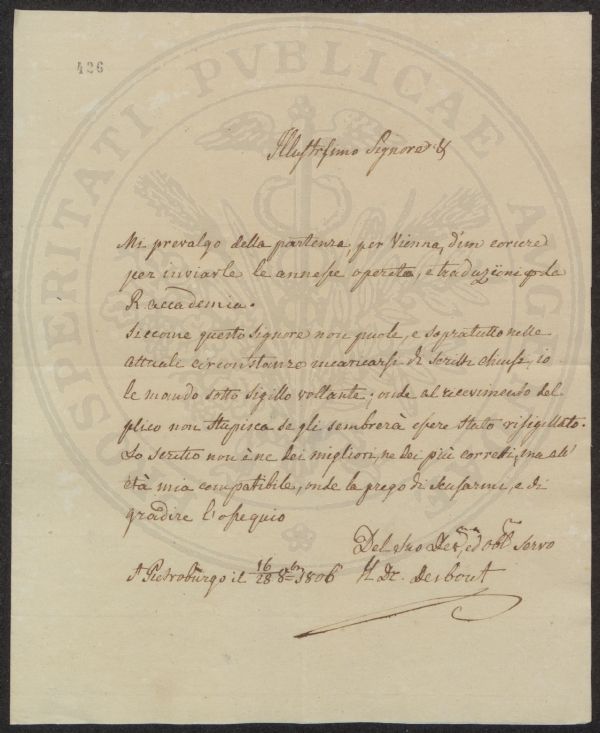 426
PROSPERITATI PVBLICAE AVG
Illustrissimo Signore &
Mi prevalgo della partenza, per Vienna, d'un coriere
per inviarle le annesse operete, e traduzioni p. la
R. accademia.
Siccome questo Signore non puole, e sopratutto nelle
attuale circonstanze incaricarsi di scritti chiusi, io
le mando sotto sigillo vollante; onde al ricevimento del
plico non stupisca se gli sembrerà essere stato risigillato.
Lo scritto non è ne dei migliori, ne dei più corretti, ma all'
età mia compatibile, onde la prego di scusarmi, e di
gradire l'ossequio
Del suo Dev.mo ed Obb. Servo
St Pietroburgo il 16/28 8bre 1806 Il Dr. Desbout